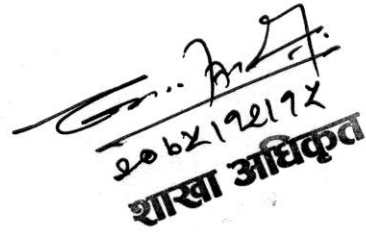 २०७५।१२।१५
शाखा अधिकृत